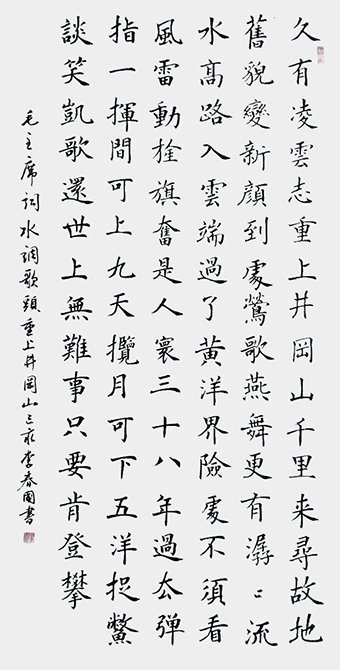 久有凌雲志重上井岡山千里来尋故地
舊貌變新顔到處鶯歌燕舞更有潺〻流
水髙路入雲端過了黄洋界險處不須看
風雷動栓旗奮是人寰三十八年過厺彈
指一揮間可上九天攬月可下五洋捉鱉
談笑凱歌還世上無難事只要肯登攀
毛主席詞水調歌頭重上井岡山己亥李春國書